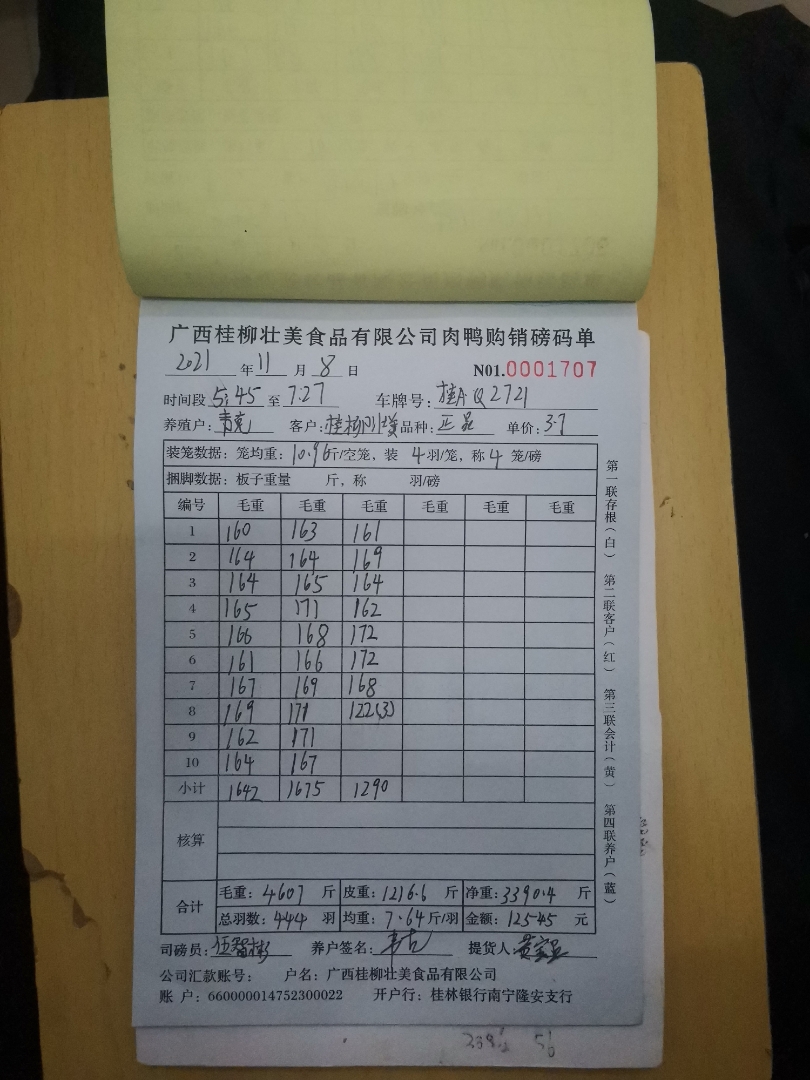 广西桂柳壮美食品有限公司肉鸭购销磅码单
2021 年 11 月 8 日 N01.0001707
时间段 5:45 至 7:27 车牌号: 桂A·Q2721
养殖户: 客户: 桂柳 品种: 正品 单价: 3.7
装笼数据: 笼均重: 10.96斤/空笼, 装 4 羽/笼, 称 4 笼/磅
捆脚数据: 板子重量 斤, 称 羽/磅
编号 毛重 毛重 毛重 毛重 毛重 毛重
1 160 163 161
2 164 164 169
3 164 165 164
4 165 171 162
5 166 168 172
6 161 166 172
7 167 169 168
8 169 171 122(3)
9 162 171
10 164 167
小计 1642 1675 1290
核算
合计 毛重: 4607 斤 皮重: 1216.6 斤 净重: 3390.4 斤
总羽数: 444 羽 均重: 7.64斤/羽 金额: 12545 元
司磅员: 养户签名: 提货人:
公司汇款账号: 户名: 广西桂柳壮美食品有限公司
账 户: 660000014752300022 开户行: 桂林银行南宁隆安支行
第一联存根(白) 第二联客户(红) 第三联会计(黄) 第四联养户(蓝)